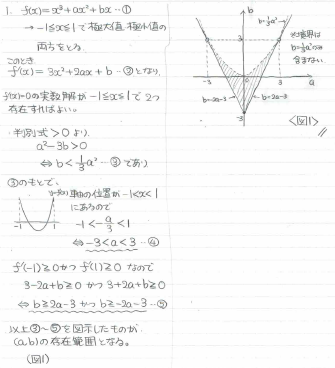 1. f(x)=x³+ax²+bx …①
→ -1≤x≤1で極大値、極小値の
両方をとる
このとき
f'(x)=3x²+2ax+b …②となり、
f'(x)=0の実数解が -1≤x≤1で2つ
存在すればよい。
判別式>0より
a²-3b>0
⇔ b<1/3a² …③であり
③のもとで、
y=f'(x) 軸の位置が -1<x<1
にあるので
-1 1
-1<-a/3<1
⇔ -3<a<3 …④
f'(-1)≥0かつf'(1)≥0なので
3-2a+b≥0かつ3+2a+b≥0
⇔ b≥2a-3かつb≥-2a-3 …⑤
以上③~⑤を図示したものが、
(a,b)の存在範囲となる。
(図1)
b
b=1/3a²
※境界は
b=1/3a²のみ
含まない
3
-3 0 3 a
b=-2a-3 b=2a-3
-3
<図1>